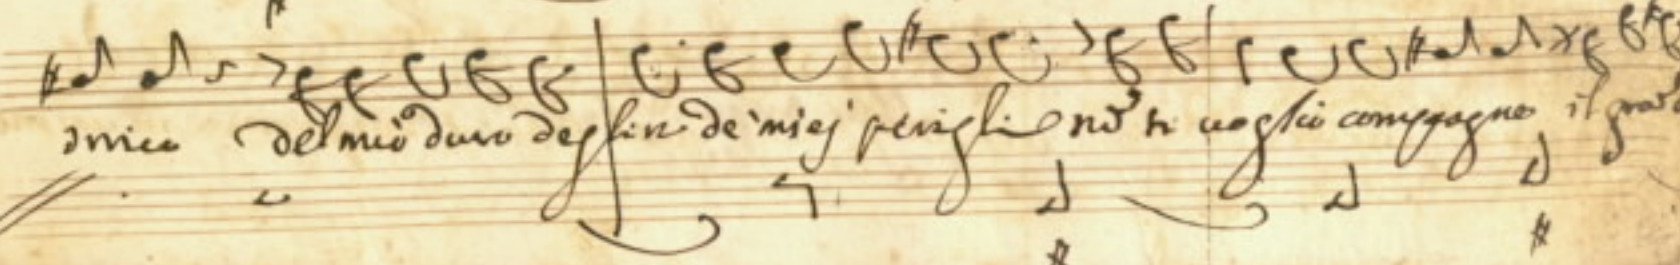 amico del mio duro destin de' miej perigli nõ ti voglio compagno il